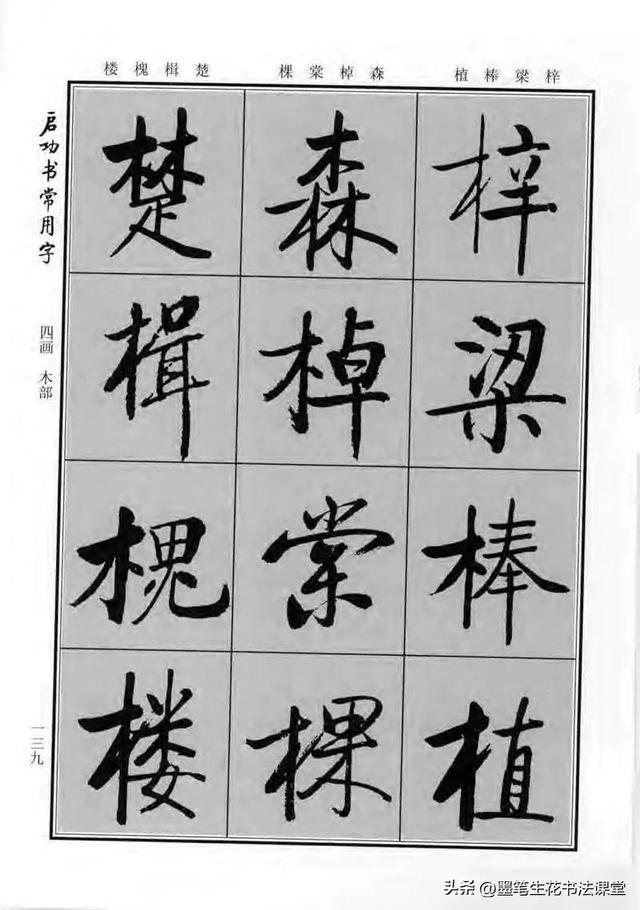 植棒梁梓
棵棠棹森
楼槐楫楚
梓
梁
棒
植
森
棹
棠
棵
楚
楫
槐
楼
启功书常用字
四画 木部
一三九
头条 @墨笔生花书法课堂